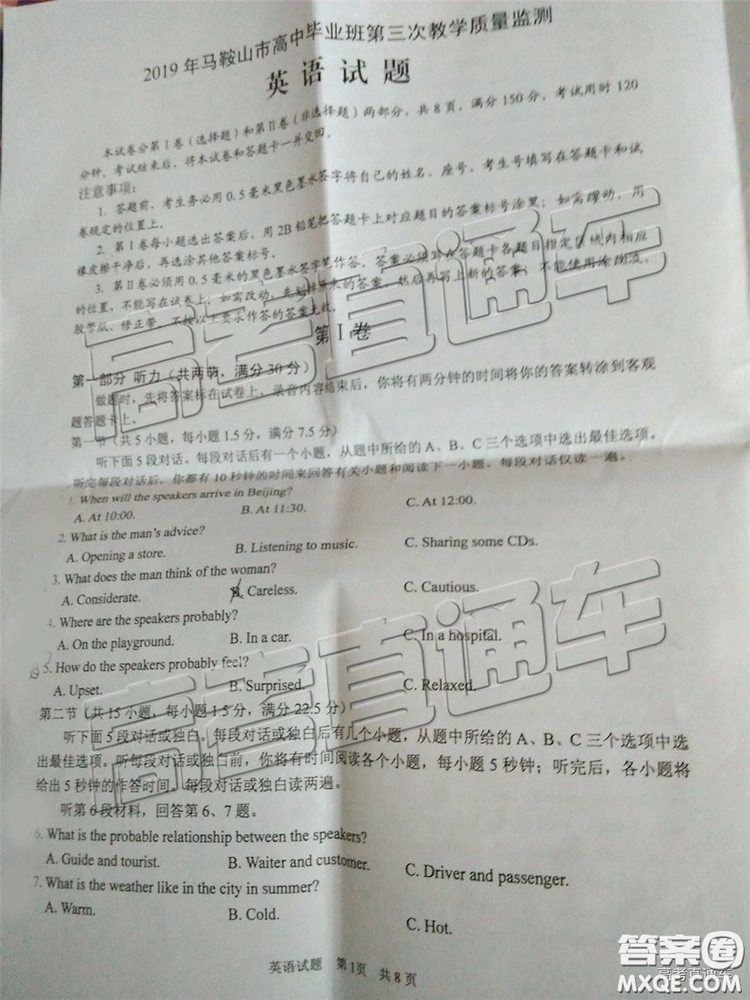 2019 年马鞍山市高中毕业班第三次教学质量监测
英语试题
本试卷分第Ⅰ卷（选择题）和第Ⅱ卷（非选择题）两部分，共 8 页，满分 150 分，考试用时 120
分钟，考试结束后，将本试卷和答题卡一并交回。
注意事项：
1. 答题前，考生务必用 0.5 毫米黑色墨水签字将自己的姓名、座号、考生号填写在答题卡和试
卷规定的位置上。
2. 第Ⅰ卷每小题选出答案后，用 2B 铅笔把答题卡上对应题目的答案标号涂黑；如需改动，用
橡皮擦干净后，再选涂其他答案标号。
3. 第Ⅱ卷必须用 0.5 毫米的黑色墨水签字笔作答，答案必须写在答题卡各题目指定区域内相应
的位置，不能写在试卷上；如需改动，先划掉原来的答案，然后再写上新的答案；不能使用涂改液、
胶带纸、修正带。不按以上要求作答的答案无效。
第Ⅰ卷
第一部分 听力（共两节，满分 30 分）
做题时，先将答案标在试卷上。录音内容结束后，你将有两分钟的时间将你的答案转涂到客观
题答题卡上。
第一节（共 5 小题，每小题 1.5 分，满分 7.5 分）
听下面 5 段对话。每段对话后有一个小题，从题中所给的 A、B、C 三个选项中选出最佳选项。
听完每段对话后，你都有 10 秒钟的时间来回答有关小题和阅读下一小题。每段对话仅读一遍。
1. When will the speakers arrive in Beijing?
A. At 10:00. B. At 11:30. C. At 12:00.
2. What is the man's advice?
A. Opening a store. B. Listening to music. C. Sharing some CDs.
3. What does the man think of the woman?
A. Considerate. B. Careless. C. Cautious.
4. Where are the speakers probably?
A. On the playground. B. In a car. C. In a hospital.
5. How do the speakers probably feel?
A. Upset. B. Surprised. C. Relaxed.
第二节（共 15 小题，每小题 1.5 分，满分 22.5 分）
听下面 5 段对话或独白。每段对话或独白后有几个小题，从题中所给的 A、B、C 三个选项中选
出最佳选项。听每段对话或独白前，你将有时间阅读各个小题，每小题 5 秒钟；听完后，各小题将
给出 5 秒钟的作答时间。每段对话或独白读两遍。
听第 6 段材料，回答第 6、7 题。
6. What is the probable relationship between the speakers?
A. Guide and tourist. B. Waiter and customer. C. Driver and passenger.
7. What is the weather like in the city in summer?
A. Warm. B. Cold. C. Hot.
英语试题 第 1页 共 8 页
高考直通车
高考直通车
高考直通车
答案圈
MXQE.COM